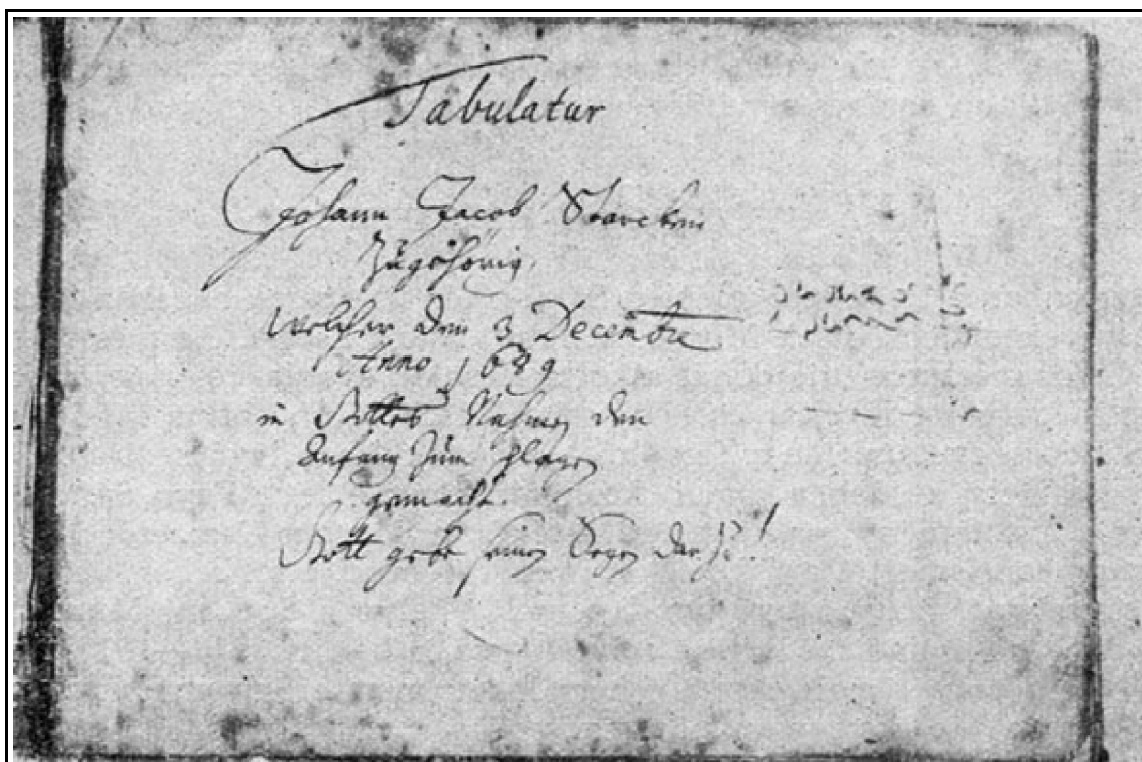 Tabulatur
Johann Jacob Starcken
Zugehörig,
Welcher den 3 Decembre
Anno 1689
in Gottes Nahmen den
Anfang zum
gemacht.
Gott gebe seinen Segen darzu!